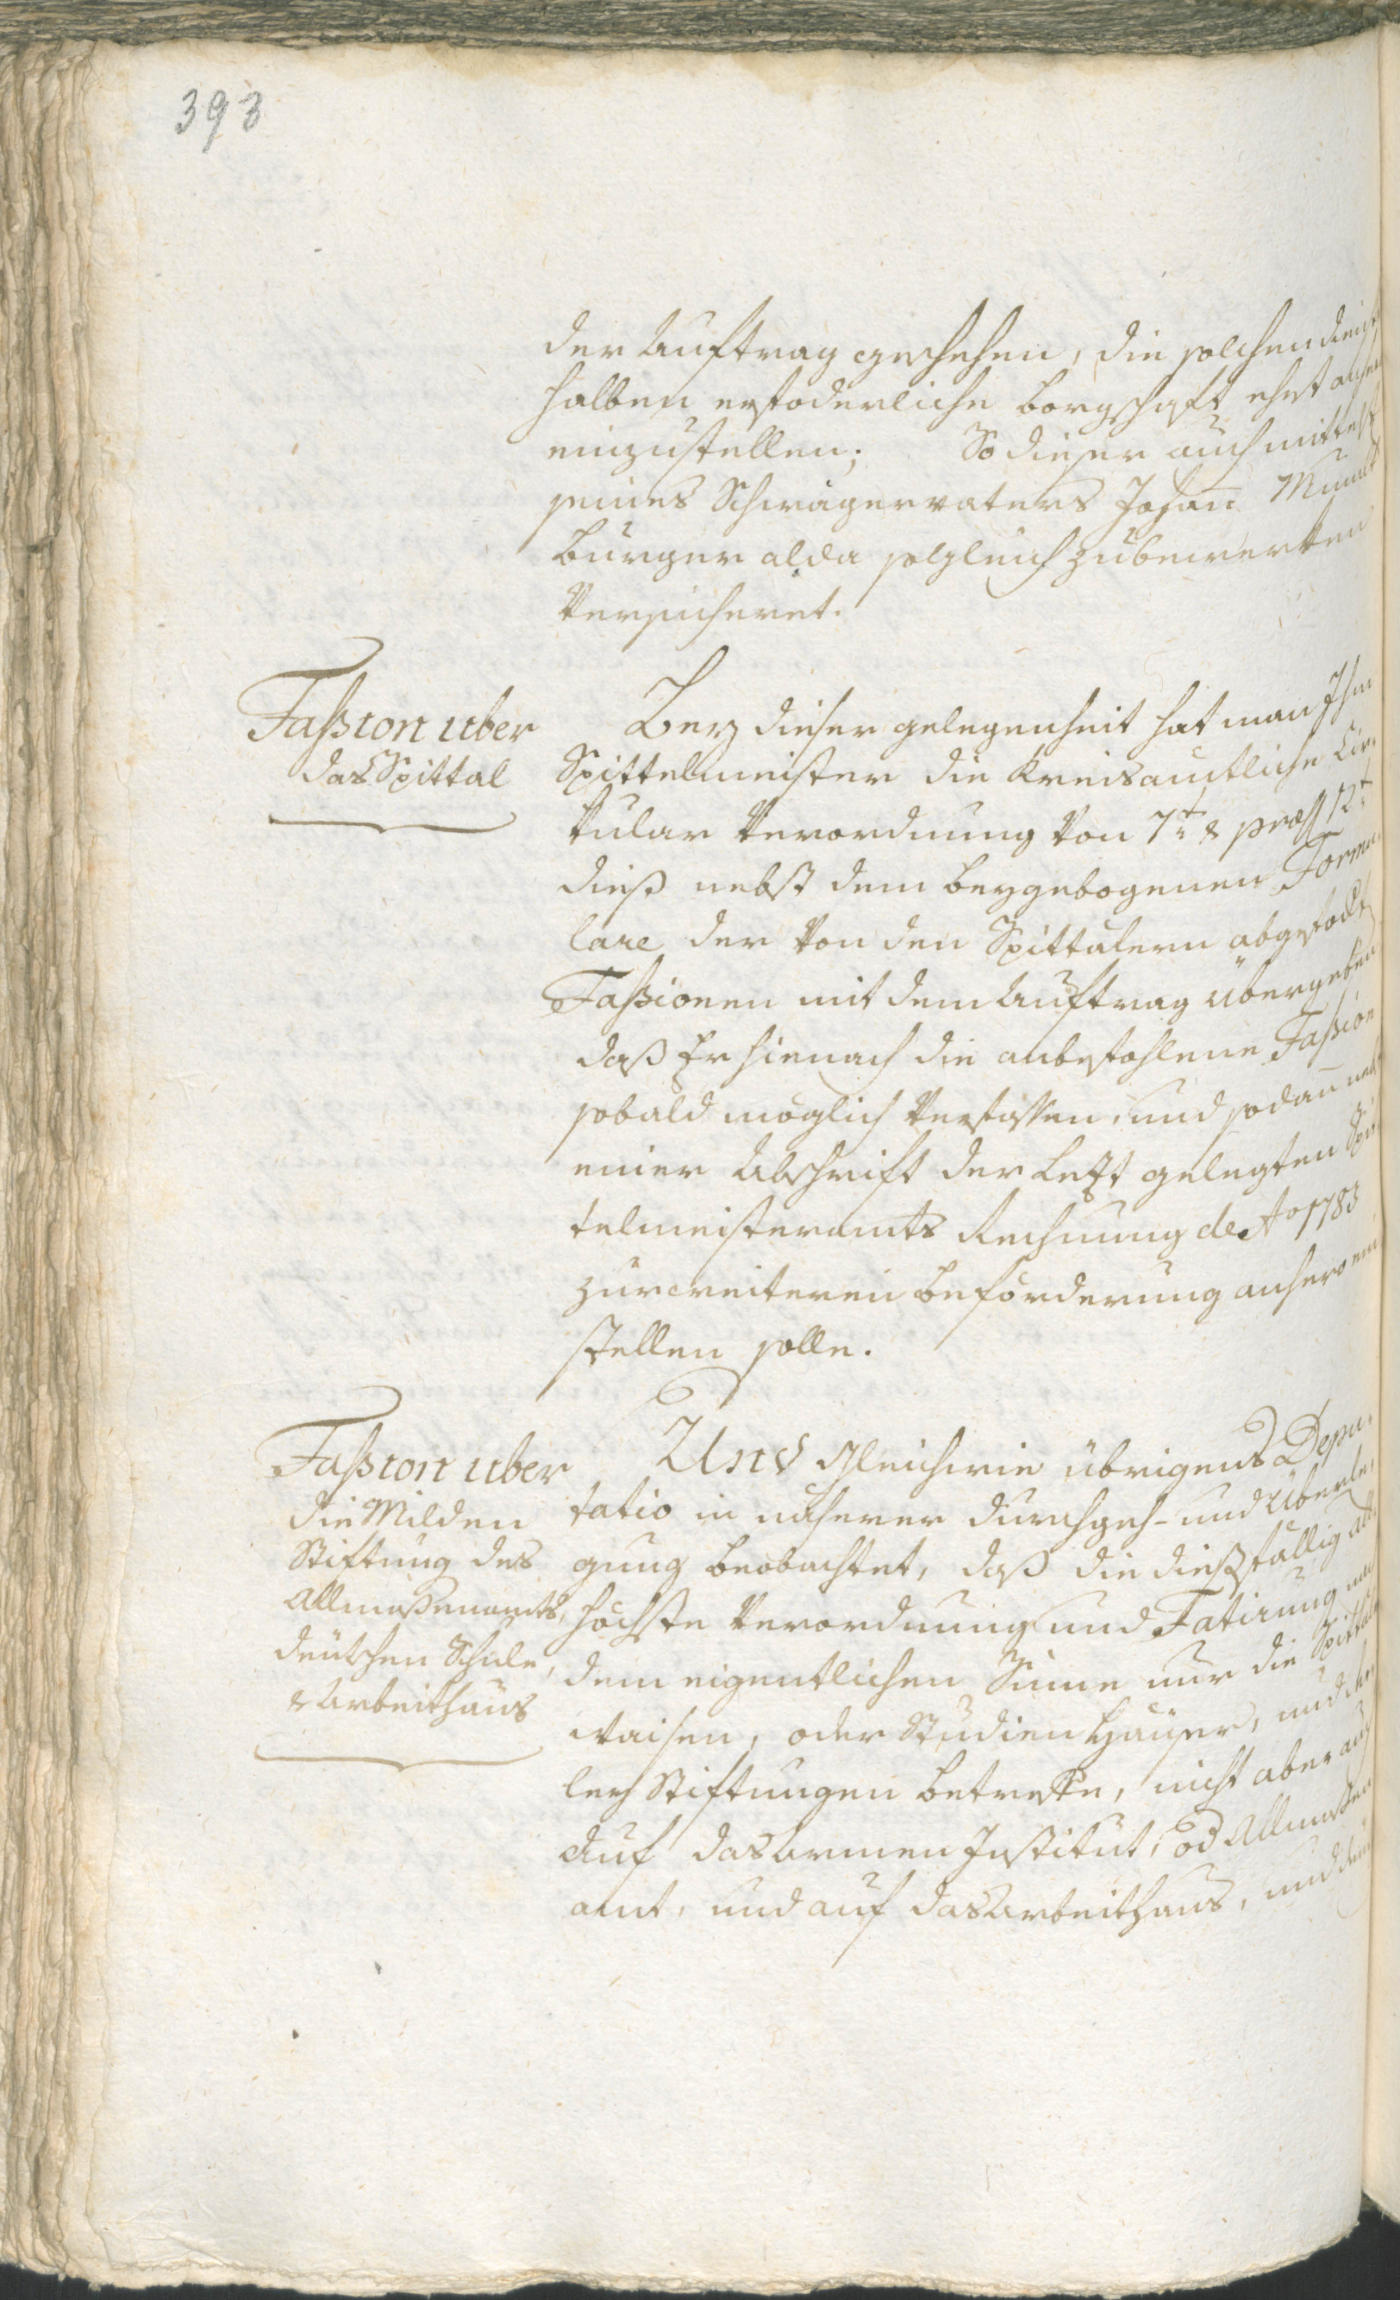 393
der Auftrag geschehen, die solchen dienst
halben erfoderliche Borgschaft ehest anher
einzustellen; So dieser auch mittelst
seines Schwagervaters Johan̄
Burger alda sogleich zubewerken
Versicheret.
Faßion uber
das Spittal
Bey dieser gelegenheit hat man Ihm
Spittelmeister die Kreisamtliche Cir-
kular Verordnung von 7t & præs 12t
dieß nebst dem beygebogenen Formu-
lare der von den Spittälern abgefodt
Faßionen mit dem Auftrag übergeben
daß Er hienach die anbefohlene Faßion
sobald möglich Verfassen, und sodan̄ nebst
einer Abschrift der Lezt gelegten Spi-
telmeisteramts Rechnung de Ao 1783
zur weiteren Beförderung anhero ein
stellen solle.
Faßion uber
die Milden
Stiftung des
Allmoßenamts,
deutschen Schule,
& Arbeithaus
Und Gleichwie übrigens Depu-
tatio in näherer durchgeh- und Überle-
gung beobachtet, daß die dießfällig all
höchste Verordnung und Fatirung nach
dem eigentlichen Sinne nur die Spittäl
Waisen, oder Studien Häuser, und
ley Stiftungen betreffe, nicht aber auch
Auf das Armen Institut, od Allmoßen
amt, und auf das Arbeithaus, und